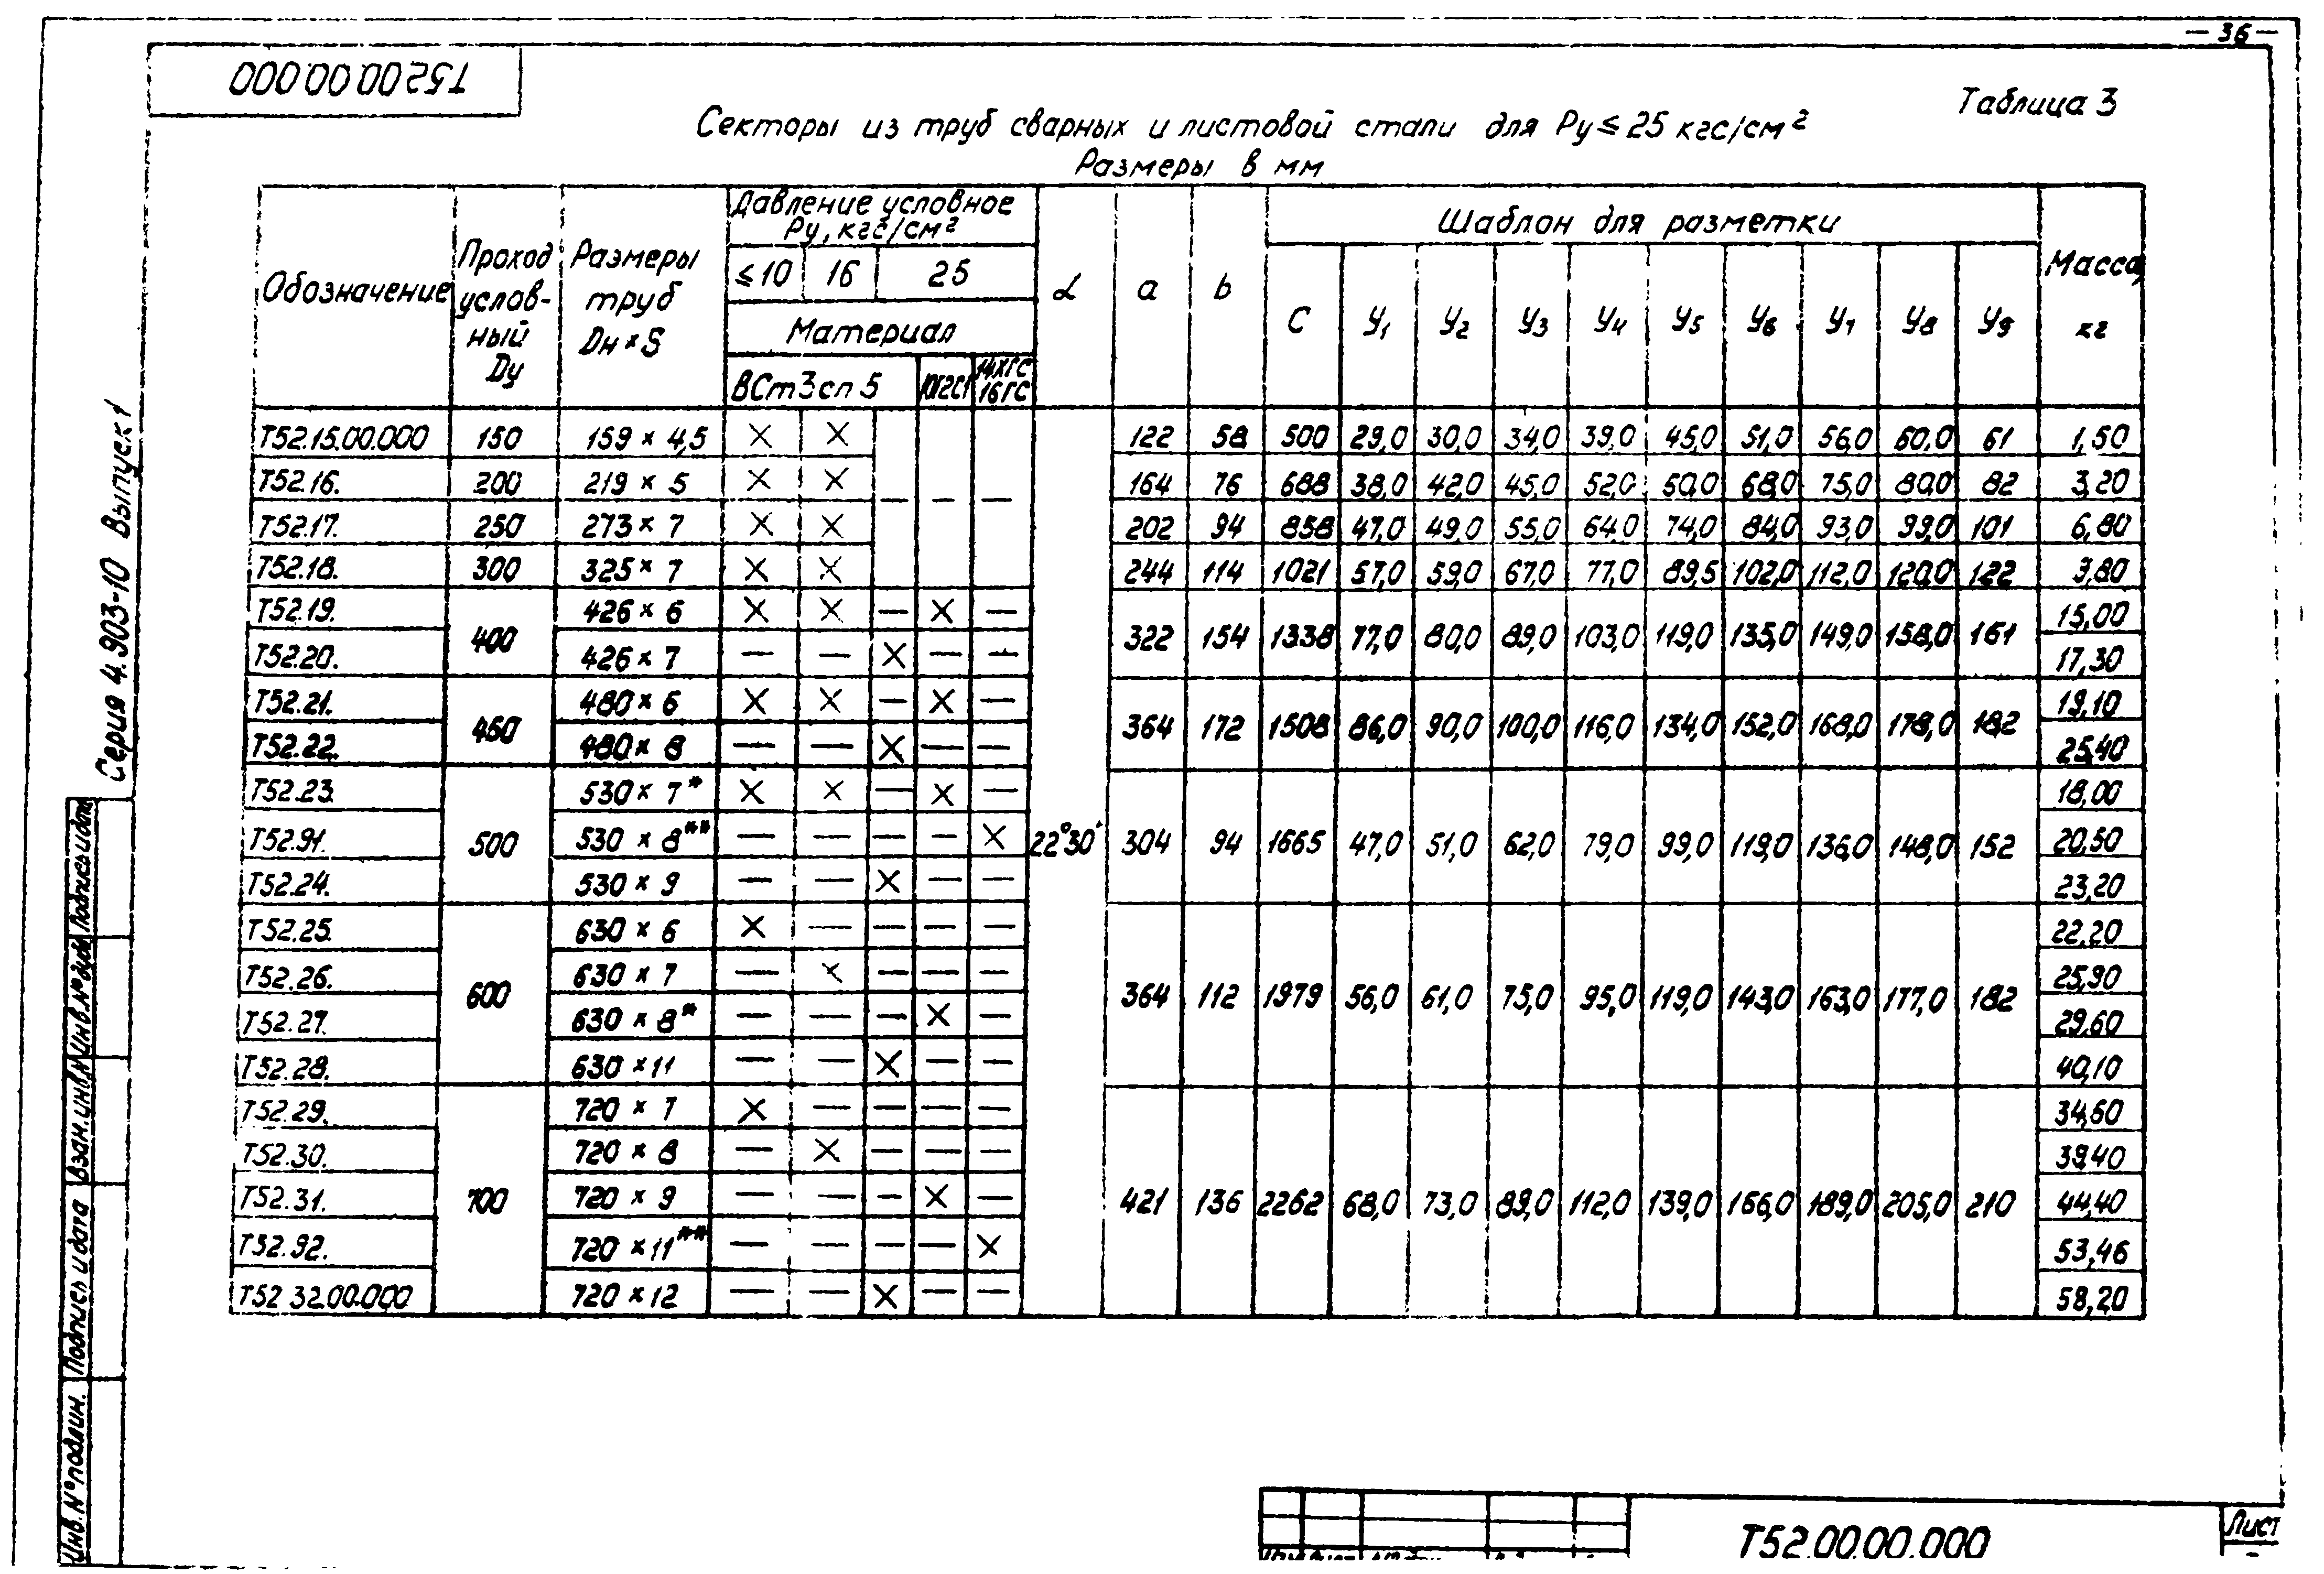 — 36 —
Т52.00.00.000
Таблица 3
Секторы из труб сварных и листовой стали для Ру ≤ 25 кгс/см²
Размеры в мм
Обозначение
Проход услов-ный Ду
Размеры труб Дн × S
Давление условное Ру, кгс/см²
≤10 16 25
Материал
ВСт3сп5 10Г2С1 14ХГС 16ГС
α a b
Шаблон для разметки
С У1 У2 У3 У4 У5 У6 У7 У8 У9
Масса, кг
Т52.15.00.000 150 159 × 4,5 × × 122 58 500 29,0 30,0 34,0 39,0 45,0 51,0 56,0 60,0 61 1,50
Т52.16. 200 219 × 5 × × — — — 164 76 688 38,0 42,0 45,0 52,0 60,0 68,0 75,0 80,0 82 3,20
Т52.17. 250 273 × 7 × × 202 94 858 47,0 49,0 55,0 64,0 74,0 84,0 93,0 99,0 101 6,80
Т52.18. 300 325 × 7 × × 244 114 1021 57,0 59,0 67,0 77,0 89,5 102,0 112,0 120,0 122 3,80
Т52.19. 426 × 6 × × — × — 15,00
400 322 154 1338 77,0 80,0 89,0 103,0 119,0 135,0 149,0 158,0 161
Т52.20. 426 × 7 — — × — — 17,30
Т52.21. 480 × 6 × × — × — 19,10
450 364 172 1508 86,0 90,0 100,0 116,0 134,0 152,0 168,0 178,0 182
Т52.22. 480 × 8 — — × — — 25,40
Т52.23. 530 × 7* × × — × — 18,00
Т52.91. 500 530 × 8** — — — — × 22°30' 304 94 1665 47,0 51,0 62,0 79,0 99,0 119,0 136,0 148,0 152 20,50
Т52.24. 530 × 9 — — × — — 23,20
Т52.25. 630 × 6 × — — — — 22,20
Т52.26. 630 × 7 — × — — — 25,90
600 364 112 1979 56,0 61,0 75,0 95,0 119,0 143,0 163,0 177,0 182
Т52.27. 630 × 8* — — — × — 29,60
Т52.28. 630 × 11 — — × — — 40,10
Т52.29. 720 × 7 × — — — — 34,60
Т52.30. 720 × 8 — × — — — 39,40
Т52.31. 700 720 × 9 — — — × — 421 136 2262 68,0 73,0 89,0 112,0 139,0 166,0 189,0 205,0 210 44,40
Т52.92. 720 × 11** — — — — × 53,46
Т52 32.00.000 720 × 12 — — × — — 58,20
Серия 4.903-10 Выпуск 1
Подпись и дата
Инв.№ дубл
Взам. инв.№
Подпись и дата
Инв.№ подлин.
Т52.00.00.000
Лист